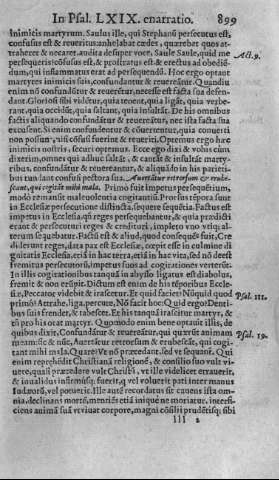 In Psal. LXIX. enarratio. 899
inimicis martyrum. Saulus ille, qui Stephanū persecutus est,
confusus est & reueritus: anhelabat cædes, quærebat quos at-
traheret & necaret: audita desuper voce, Saule Saule, quid me
Act. 9.
persequeris? cōfusus est, & prostratus est & erectus ad obediē-
dum, qui inflammatus erat ad persequendū. Hoc ergo optant
martyres inimicis suis, confundantur & reuereātur. Quandiu
enim nō confundūtur & reuerētur, necesse est facta sua defen-
dant. Gloriosi sibi vidētur, quia tenent, quia ligāt, quia verbe-
rant, quia occidūt, quia saltant, quia insultāt. De his omnibus
factis aliquando confundātur & reuereātur,
Si enim confundentur & cōuertentur, quia conuerti
non possunt, nisi cōfusi fuerint & reueriti. Optemus ergo hæc
inimicis nostris, securi optemus. Ecce ego dixi, & vobiscum
dixerim, omnes qui adhuc saltāt, & cantāt & insultāt marty-
ribus, confundātur & reuereantur, & aliquādo in his parieti-
bus tundant confusi pectora sua. Auertātur retrorsum & erube-
scant, qui cogitāt mihi mala. Primò fuit impetus persequētium,
modò remansit maleuolentia cogitantiū. Prorsus tēpora sunt
in Ecclesia persecutione distincta, sequente
impetus in Ecclesia, qn̄ reges persequebantur, & quia prædicti
erant & persecuturi reges & credituri, impleto vno
Factū est & aliud, quod consequēs fuit, Cre-
diderunt reges, data pax est Ecclesiæ, cœpit esse in culmine di-
gnitatis Ecclesia, etiā in hac terra, etiā in hac vita, sed nō deest
fremitus persecutorū, impetus suos ad cogitationes verterūt.
In illis cogitationibus tanquā in abysso ligatus est diabolus,
fremit & non erūpit. Dictum est enim de his tēporibus Eccle-
siæ, Peccator videbit & irascetur. Et quid faciet? Nūquid quod
primò? Attrahe, liga, percute. Nō facit hoc. Quid ergo? Denti-
Psal. 111.
bus suis frendet, & tabescet. Et his tanquā irascitur martyr, &
tn̄ pro his orat martyr. Quomodo enim bene optauit illis, de
quibus dixit, Confundātur & reuereātur, qui quærūt animam
Psal. 39.
meam: sic & nūc, Auertātur retrorsum & erubescāt, qui cogi-
tant mihi mala. Quare? Vt nō præcedant, sed vt sequantur. Qui
enim reprehēdit Christianā religionē, & consilio suo vult vi-
uere, quasi præcedere vult Christū, vt ille videlicet errauerit,
& inualidus infirmusq; fuerit, q̄ vel voluerit pati inter manus
Iudæorū, vel potuerit. Ille autē recordatus sit cauens ista om-
nia, declinans mortē, mentiēs etiā inique ne moriatur, interfi-
ciens animā suā vt viuat corpore, magni cōsilij prudētisq; sibi
lll 2